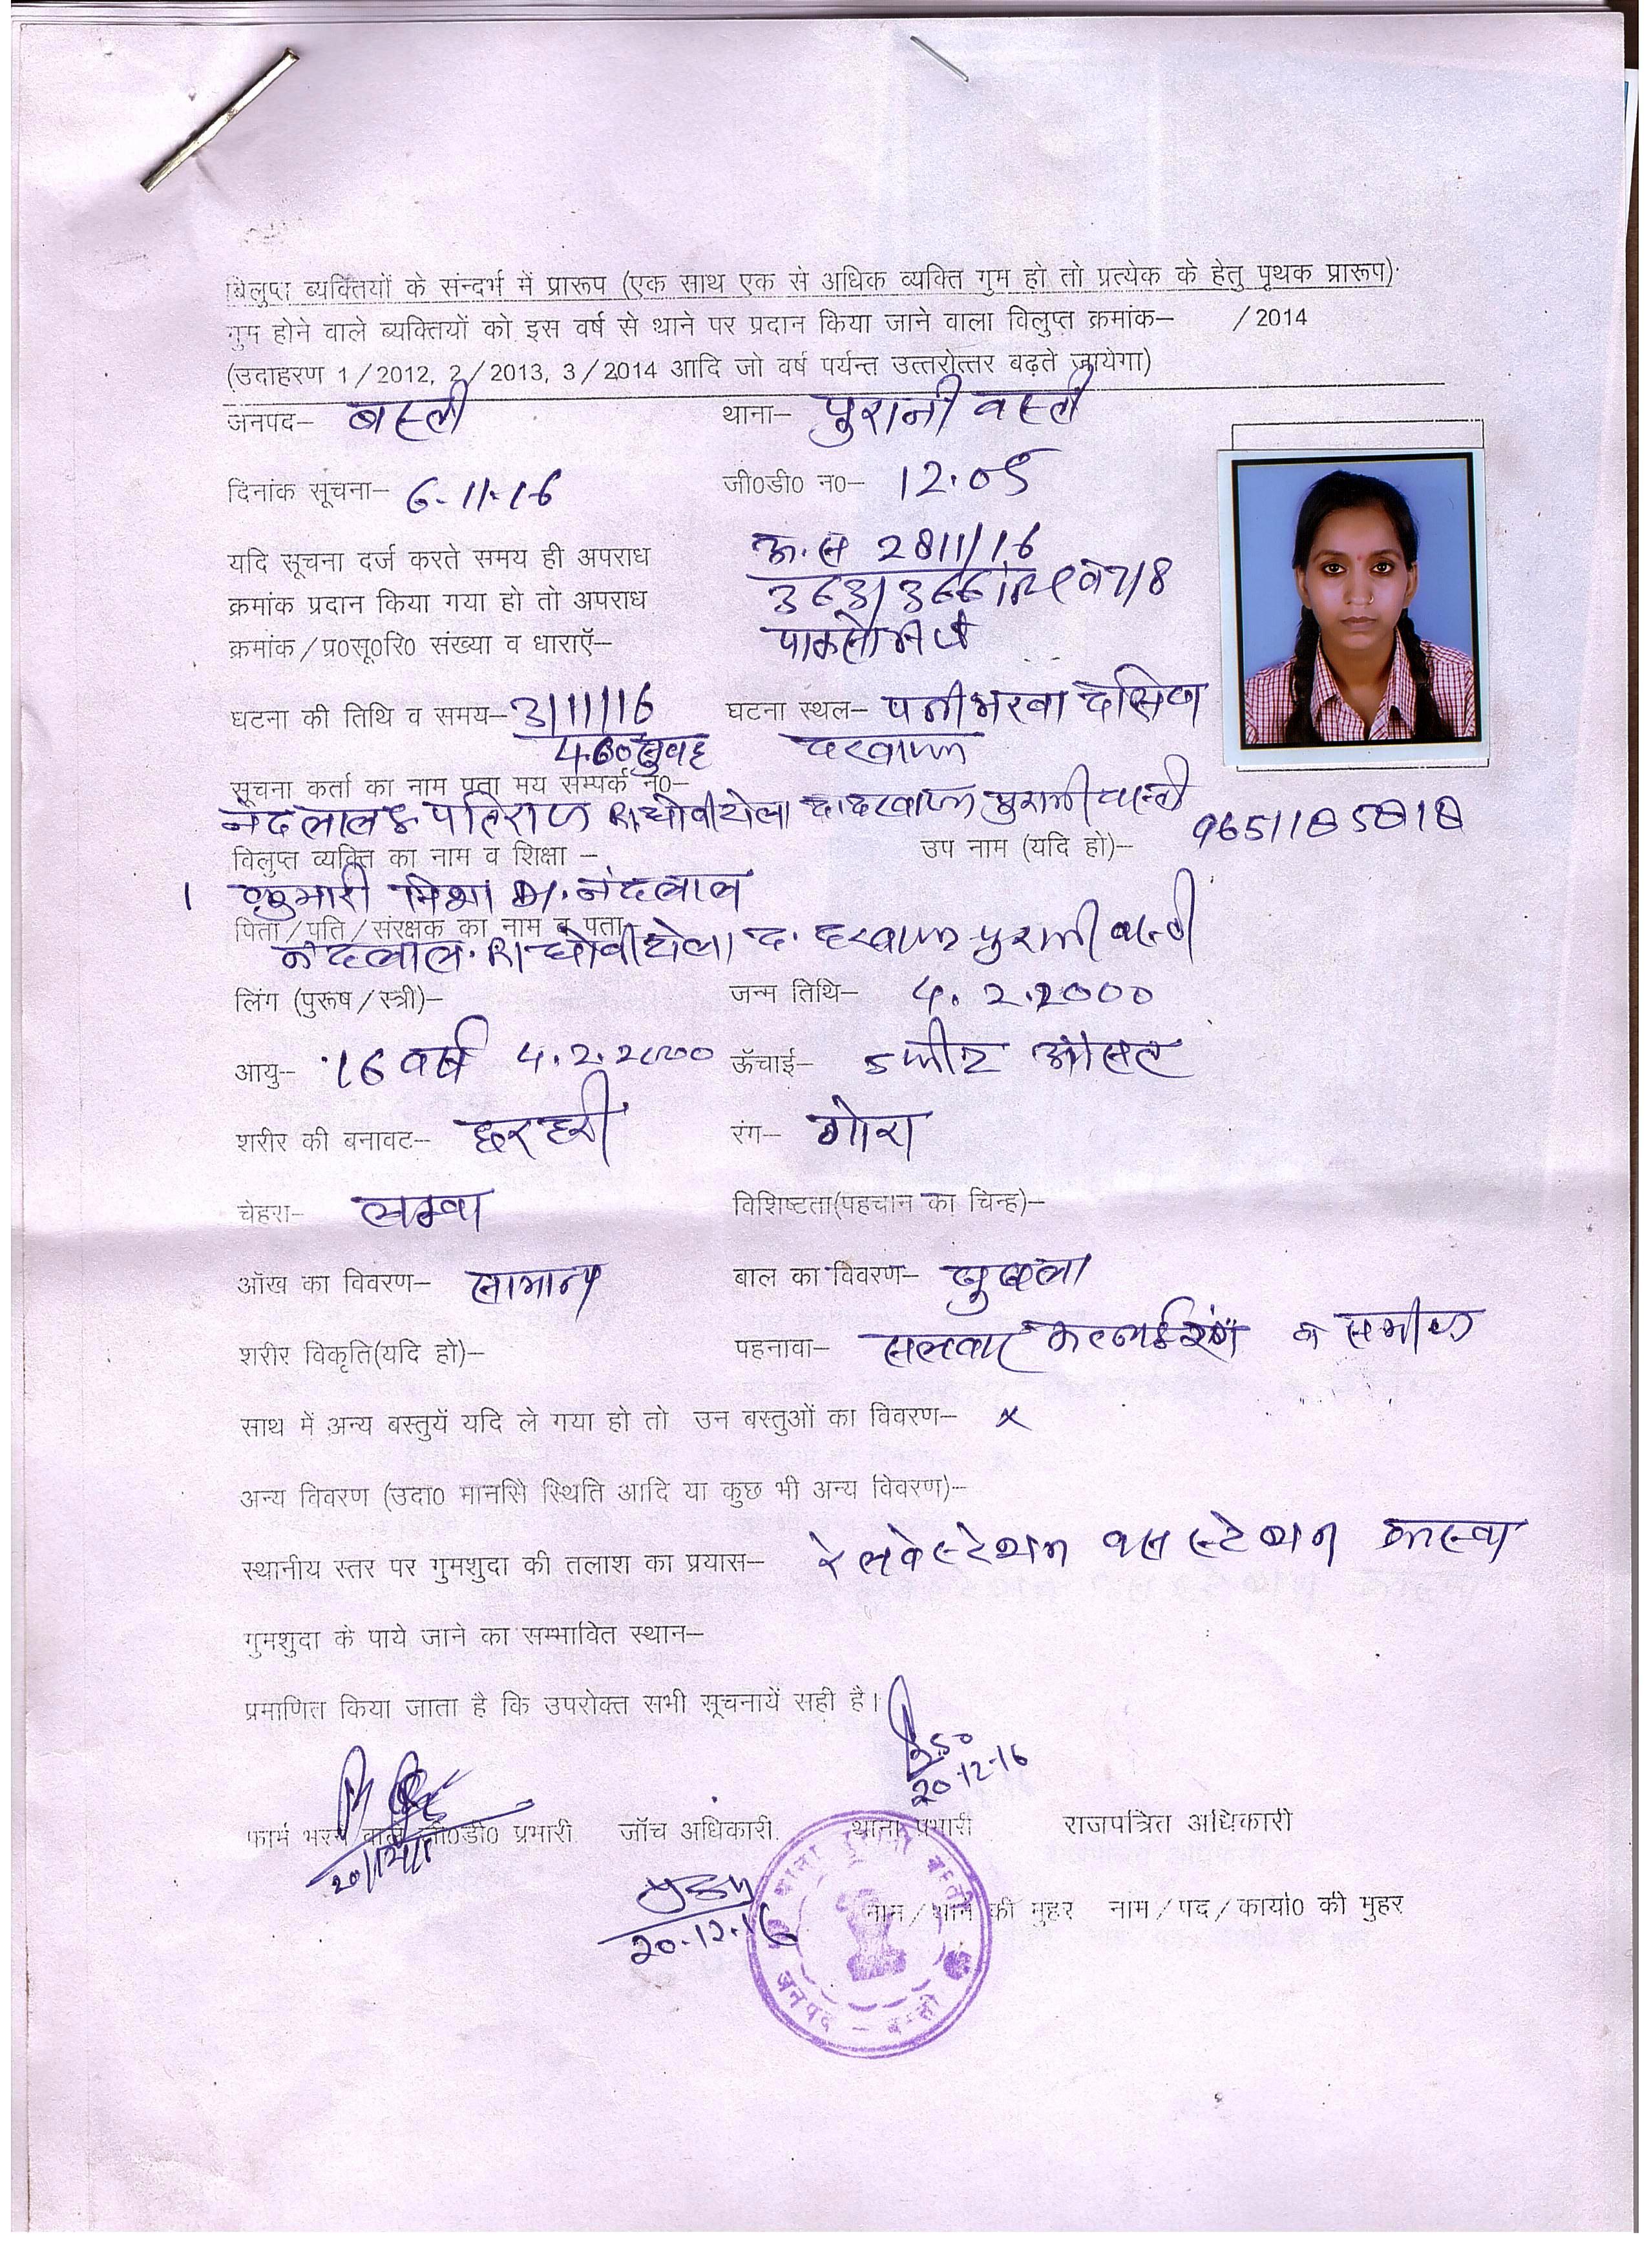 विलुप्त ब्यक्तियों के संन्दर्भ में प्रारूप (एक साथ एक से अधिक व्यक्ति गुम हो तो प्रत्येक के हेतु पृथक प्रारूप)
गुम होने वाले ब्यक्तियों को इस वर्ष से थाने पर प्रदान किया जाने वाला विलुप्त क्रमांक– /2014
(उदाहरण 1/2012, 2/2013, 3/2014 आदि जो वर्ष पर्यन्त उत्तरोत्तर बढ़ते जायेगा)
जनपद– बस्ती थाना– पुरानी बस्ती
दिनांक सूचना– 6-11-16 जी0डी0 न0– 12.05
यदि सूचना दर्ज करते समय ही अपराध
क्रमांक प्रदान किया गया हो तो अपराध 363/366 7/8
क्रमांक/प्र0सू0रि0 संख्या व धाराऍ–
घटना की तिथि व समय– 3/11/16 घटना स्थल–
सुवह
सूचना कर्ता का नाम पता मय सम्पर्क न0–
नंदलाल पुरानी बस्ती 9651185818
विलुप्त व्यक्ति का नाम व शिक्षा – उप नाम (यदि हो)–
1 कुमारी D/. नंदलाल
पिता/पति/संरक्षक का नाम व पता
नंदलाल. R/- धोबी टोला द. पुरानी बस्ती
लिंग (पुरूष/स्त्री)– जन्म तिथि– 4. 2. 2000
आयु– 16 वर्ष 4.2.2000 ऊँचाई– 5 फीट औसत
शरीर की बनावट– छरहरी रंग– गोरा
चेहरा– लम्बा विशिष्टता(पहचान का चिन्ह)–
ऑख का विवरण– सामान्य बाल का विवरण–
शरीर विकृति(यदि हो)– पहनावा– सलवार
साथ में अन्य बस्तुयें यदि ले गया हो तो उन बस्तुओं का विवरण– x
अन्य विवरण (उदा0 मानसि स्थिति आदि या कुछ भी अन्य विवरण)–
स्थानीय स्तर पर गुमशुदा की तलाश का प्रयास– रेलवे स्टेशन बस स्टेशन कस्बा
गुमशुदा के पाये जाने का सम्भावित स्थान–
प्रमाणित किया जाता है कि उपरोक्त सभी सूचनायें सही है।
20-12-16
फार्म भरने वाले जी0डी0 प्रभारी जॉच अधिकारी थाना प्रभारी राजपत्रित अधिकारी
20-12-16
नाम/थाने की मुहर नाम/पद/कार्या0 की मुहर
थाना पुरानी बस्ती
जनपद – बस्ती